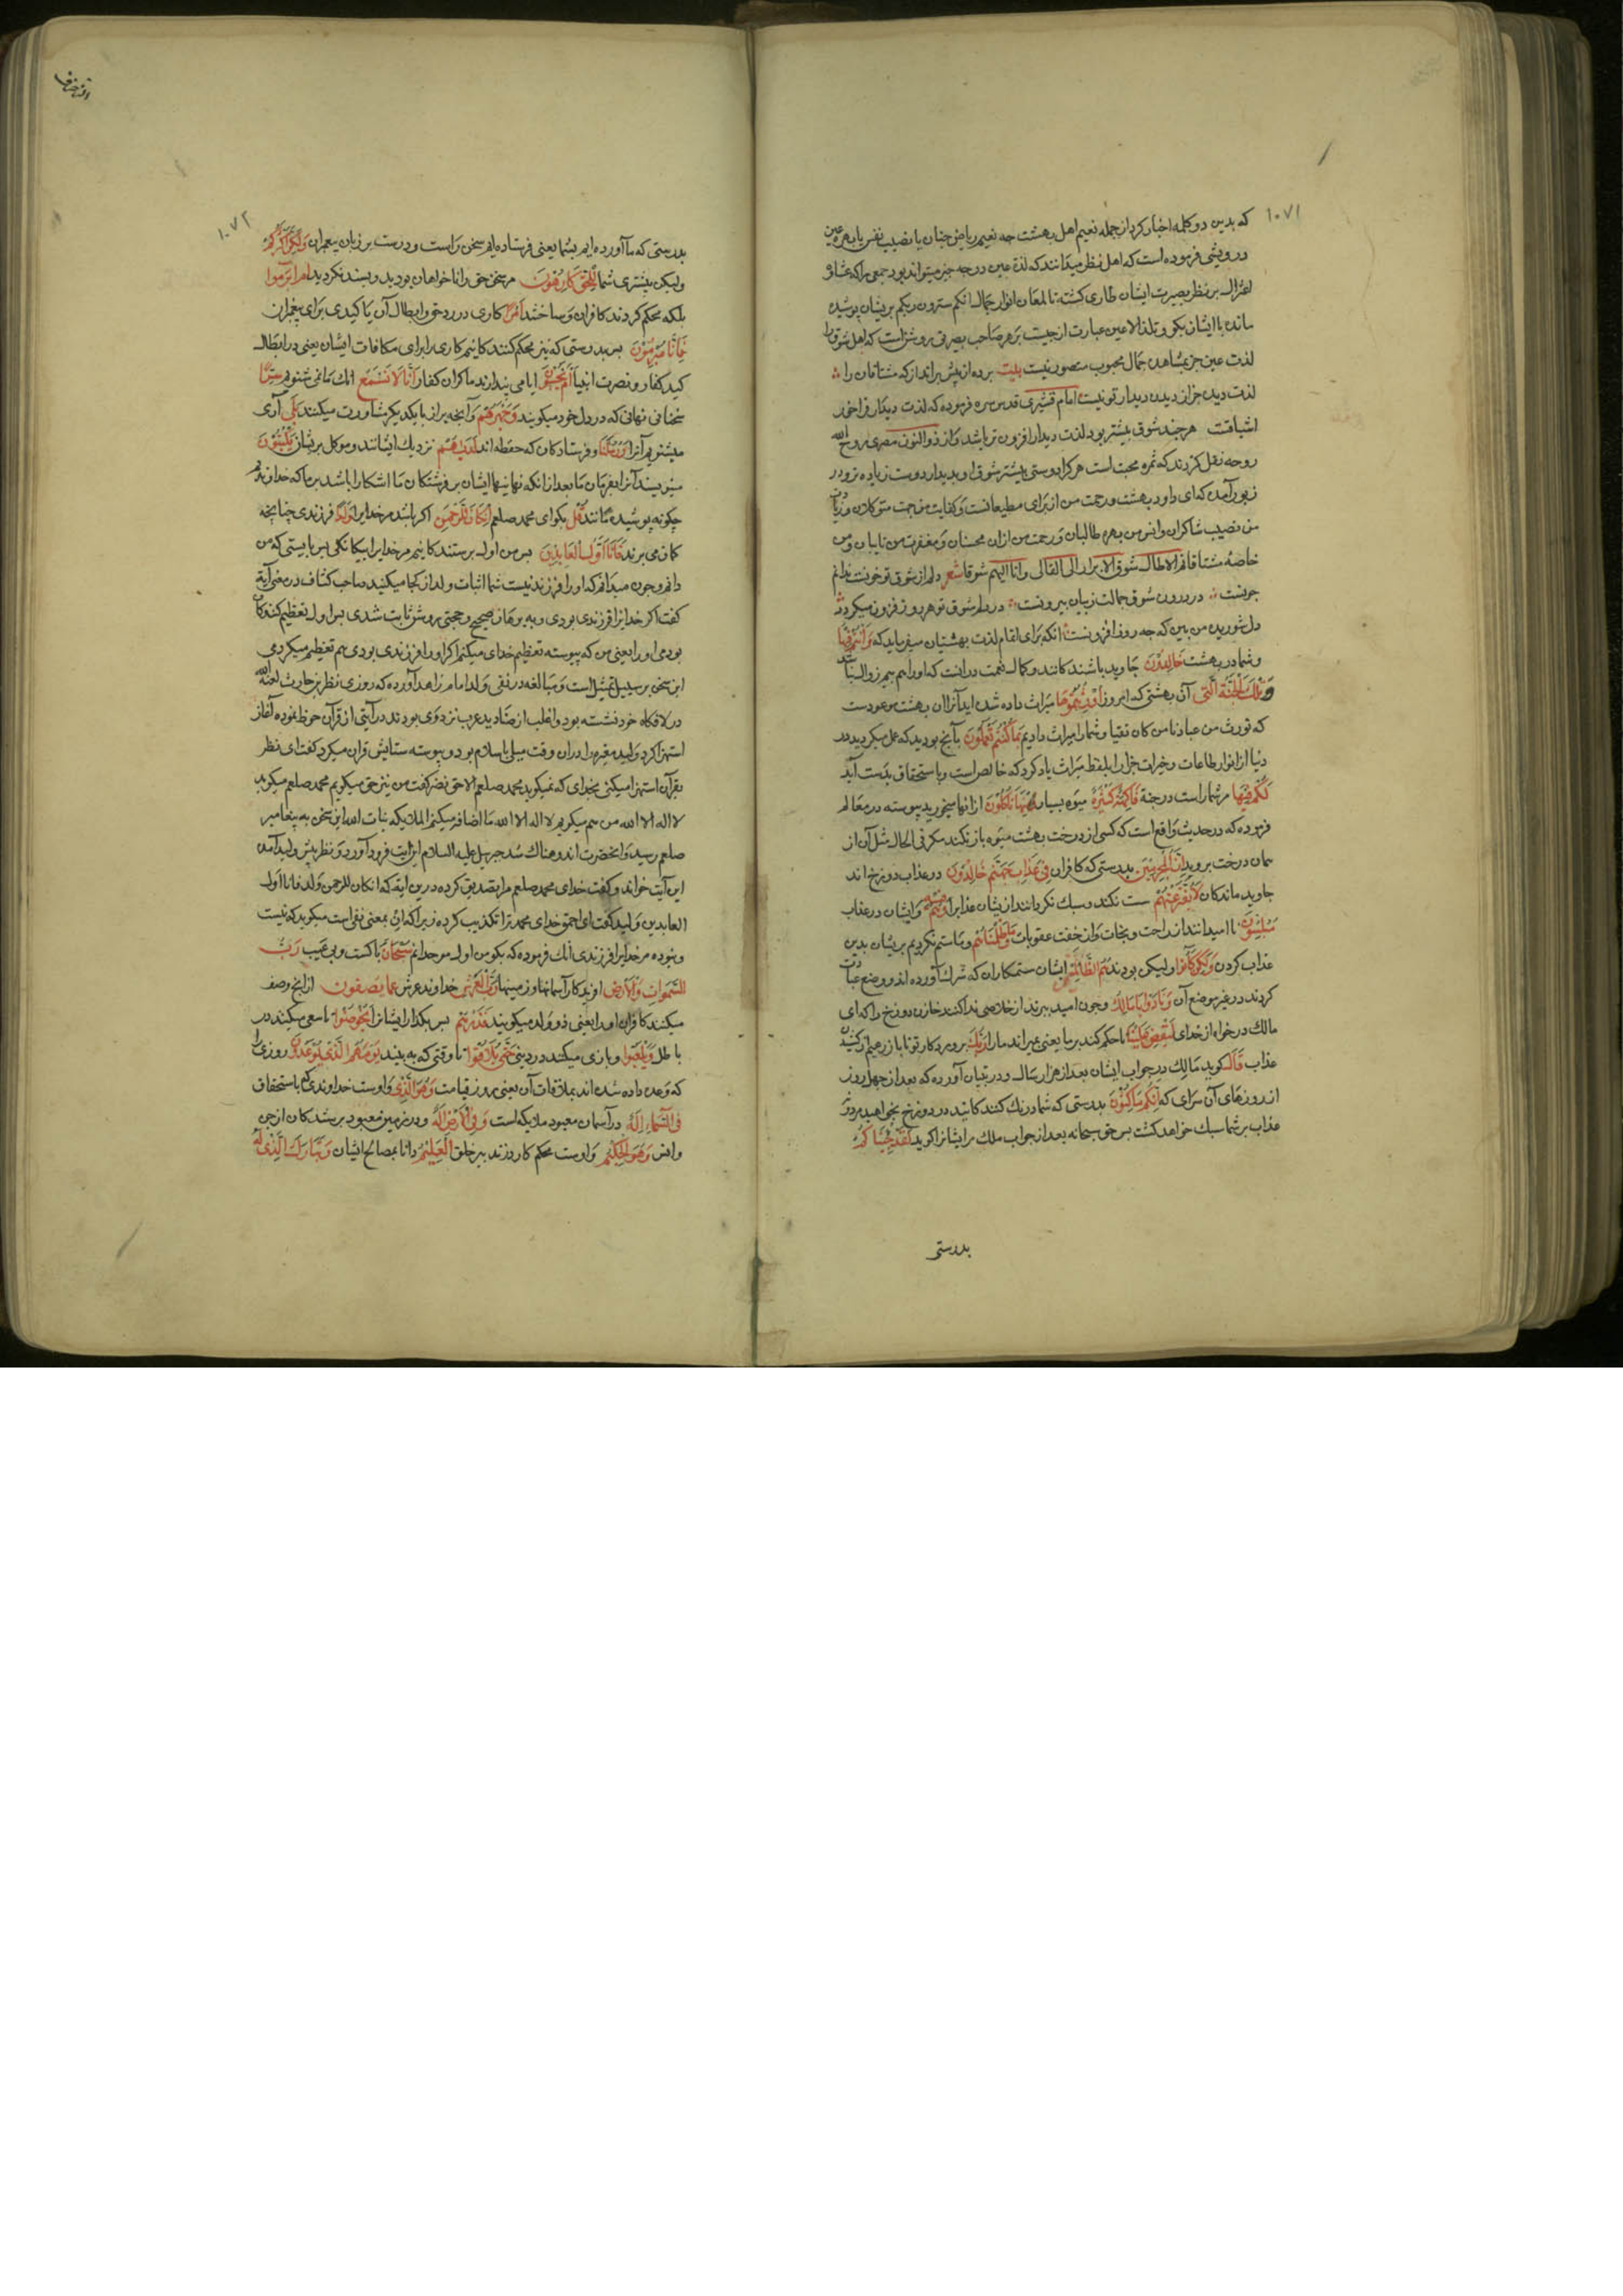 ۱۰۷۱
که بدین دو کلمه اخبار کرد از جمله نعیم اهل بهشت چه نعیم ریاض جنان یا نصیب نفس یا بهره عین
درویشی فرموده است که اهل نظر میدانند که لذة عین در چه چیز میتواند بود جمعی را که غشاؤ
اعتزال بر نظر بصیرت ایشان طاری کشته تا لمعان انوار جمال انکم سترون ربکم بریشان پوشیده
مانده با ایشان بکو و تلذ الاعین عبارت از چیست بر هر صاحب بصیرتی روشن است که اهل شوق را
لذت عین جز بمشاهده جمال محبوب متصور نیست بیت پرده از پیش برانداز که مشتاقان را
لذت دیده جز از دیدن دیدار تو نیست امام قشیری قدس سره فرموده که لذت دیدار فراخور
اشتیاقست هر چند شوق بیشتر بود لذت دیدار افزون تر باشد و از ذوالنون مصری روح الله
روحه نقل کردند که ثمره محبت است هر کرا دوستی بیشتر شوق او بدیدار دوست زیاده تر و در
زبور آمده که ای داود بهشت و رحمت من از برای مطیعانست و کفایت من جهت متوکلان و زیادت
من نصیب شاکران و انس من بهره طالبان و رحمت من ازان محسنان و مغفرت من تایبان و من
خاصه مشتاقانم الا طال شوق الابرار الی لقائی و انا الیهم شوقا شعر دلم از شوق تو خونست ندانم
چونست در درون شوق جمالت ز بیان بیرونست در دلم شوق تو هر روز فزون میکردد
دل شوریده من بین که چه روز افزونست انکه برای اتمام لذت بهشتیان میفرماید که وانتم فیها
و شما در بهشت خالدون جاوید باشندکانند و کمال نعمت درانست که اورا بیم زوال نباشد
وتلک الجنة التی آن بهشتی که امروز اورثتموها میراث داده شده اید آنرا ان بهشت موعودست
که نورث من عبادنا من کان تقیا و شما را میراث دادیم بما کنتم تعملون بآنچه بودید که عمل میکردید در
دنیا از انوار طاعات و خیرات جزا را بلفظ میراث یاد کرد که خالص است و باستحقاق بدست آید
لکم فیها مر شما راست در جنة فاکهة کثیرة میوه بسیار منها تاکلون ازانها میخورید پیوسته در معالم
فرموده که در حدیث واقع است که کسی از درخت بهشت میوه باز نکند مکر فی الحال مثل آن از
همان درخت بروید ان المجرمین بدرستی که کافران فی عذاب جهنم خالدون در عذاب دوزخ اند
جاوید ماندکان لا یفتر عنهم سست نکند و سبک نکردانند ازیشان عذابرا وهم فیه و ایشان در عذاب
مبلسون نا امیدانند از راحت و نجات و از خفت عقوبات وما ظلمناهم و ما ستم نکردیم بریشان بدین
عذاب کردن ولکن کانوا ولیکن بودند هم الظالمین ایشان ستمکاران که شرک آورده اند و وضع عبادت
کردند در غیر موضع آن ونادوا یا مالک و چون امید ببرند از خلاصی ندا کنند خازن دوزخ را که ای
مالک درخواه از خدای لیقض علینا تا حکم کند بر ما یعنی بمیراند ما را ربک پروردکار تو تا باز رهیم از کشیدن
عذاب قال کوید مالک در جواب ایشان بعد از هزار سال و در تبیان آورده که بعد از چهل روز
از روزهای آن سرای که انکم ماکثون بدرستی که شما درنک کنندکانید در دوزخ نخواهید مرد و نه
عذاب بر شما سبک خواهد کشت پس حق سبحانه بعد از جواب ملک مر ایشانرا کوید لقد جئناکم
بدرستی
۱۰۷۲
بدرستی که ما آورده ایم بشما یعنی فرستاده ایم سخن راست و درست بر زبان پیغمبران ولکن اکثرکم
ولیکن بیشتری شما للحق کارهون مر سخن حق را نا خواهان بودید و پسند نکردید ام ابرموا
بلکه محکم کردند کافران و ساختند امرا کاری در رد حق و ابطال آن یا کیدی برای پیغمبران
فانا مبرمون پس بدرستی که نیز محکم کنندکانیم کاری را برای مکافات ایشان یعنی در ابطال
کید کفار و نصرت انبیا ام یحسبون ایا می پندارند ماکران کفار انا لا نسمع انک ما نمی شنویم سرهم
سخنانی نهانی که در دل خود میکویند ونجویهم و آنچه براز با یکدیکر مشاورت میکنند بلی آری
میشنویم آنرا ورسلنا و فرستادکان که حفظه اند لدیهم نزدیک ایشانند و موکل بریشان یکتبون
مینویسند آنرا بفرمان ما بعد ازانکه نهانیهاء ایشان بر فرشتکان ما اشکارا باشد بر ما که خداوندیم
چکونه پوشیده ماند قل بکو ای محمد صلعم ان کان للرحمن اکر باشد مر خدایرا ولد فرزندی چنانچه
کمان می برند فانا اول العابدین پس من اول پرستندکانیم مر خدایرا بیکانکی پس بایستی که من
دانم و چون میدانم که اورا فرزند نیست شما اثبات ولد از کجا میکنید صاحب کشاف در معنی آیة
کفت اکر خدایرا فرزندی بودی و به برهان صحیح و حجتی روشن ثابت شدی پس اول تعظیم کنندکان
بودمی اورا یعنی من که پیوسته تعظیم خدای میکنم اکر اورا فرزندی بودی هم تعظیم میکردمی
این سخن بر سبیل تمثیل است و مبالغه در نفی ولد امام زاهد آورده که روزی نظر بن حارث لعنه الله
در لافکاه خود نشسته بود و اغلب از صنادید عرب نزد وی بودند در آیتی از قرآن خوظ نموده آغاز
استهزا کرد ولید مغیره را دران وقت میلی باسلام بود و پیوسته ستایش قران میکرد کفت ای نظر
بقرآن استهزا میکنی بخدای که نمیکوید محمد صلعم الا حق نضر کفت من نیز حق میکویم محمد صلعم میکوید
لا اله الا الله من هم میکویم لا اله الا الله ما اضافه میکنم الملایکه بنات الله این سخن به پیغامبر
صلعم رسید و انحضرت اندوهناک شد جبرییل علیه السلام این آیت فرود آورد و نظر پیش ولید آمده
این آیت خواند و کفت خدای محمد صلعم مرا تصدیق کرده درین ایة که ان کان للرحمن ولد فانا اول
العابدین ولید کفت ای احمق خدای محمد ترا تکذیب کرده زیرا که ان بمعنی نفی است میکوید که نیست
و نبوده مر خدایرا فرزندی آنک فرموده که بکو من اول موحدانم سبحان پاکست و بی عیب رب
السموات والارض اوریدکار آسمانها و زمینها رب العرش خداوند عرش عما یصفون از انچ وصف
میکنند کافران اورا یعنی ذو ولد میکویند فذرهم پس بکذار ایشانرا یخوضوا تا سعی میکنند در
باطل ویلعبوا و بازی میکنند در دینی حتی یلاقوا تا وقتی که به بینند یومهم الذی یوعدون روزی را
که وعده داده شده اند بملاقات آن یعنی بروز قیامت وهو الذی و اوست خداوندی که باستحقاق
فی السماء اله در آسمان معبود ملایکه است وفی الارض اله و در زمین معبود پرستدکان از جن
وانس وهو الحکیم و اوست محکم کار در تدبیر خلق العلیم دانا بمصالح ایشان وتبارک الذی له